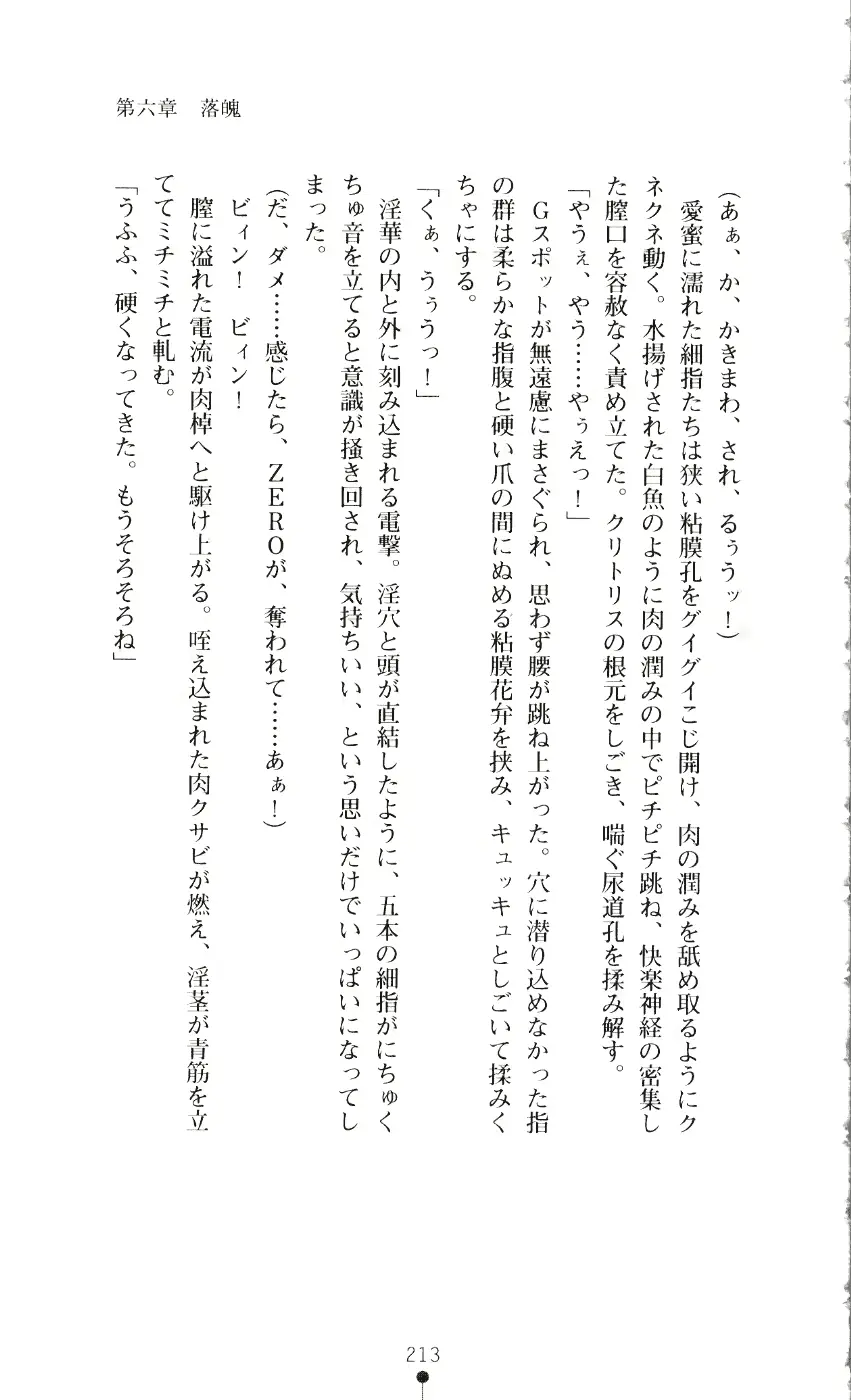 第六章　落魄
(あぁ、か、かきまわ、され、るぅうッ！)
愛蜜に濡れた細指たちは狭い粘膜孔をグイグイこじ開け、肉の潤みを舐め取るようにク
ネクネ動く。水揚げされた白魚のように肉の潤みの中でピチピチ跳ね、快楽神経の密集し
た膣口を容赦なく責め立てた。クリトリスの根元をしごき、喘ぐ尿道孔を揉み解す。
「やうぇ、やう……やぅえっ！」
Ｇスポットが無遠慮にまさぐられ、思わず腰が跳ね上がった。穴に潜り込めなかった指
の群は柔らかな指腹と硬い爪の間にぬめる粘膜花弁を挟み、キュッキュとしごいて揉みく
ちゃにする。
「くぁ、うぅうっ！」
淫華の内と外に刻み込まれる電撃。淫穴と頭が直結したように、五本の細指がにちゅく
ちゅ音を立てると意識が掻き回され、気持ちいい、という思いだけでいっぱいになってし
まった。
(だ、ダメ……感じたら、ＺＥＲＯが、奪われて……あぁ！)
ビィン！　ビィン！
膣に溢れた電流が肉棹へと駆け上がる。咥え込まれた肉クサビが燃え、淫茎が青筋を立
ててミチミチと軋む。
「うふふ、硬くなってきた。もうそろそろね」
213